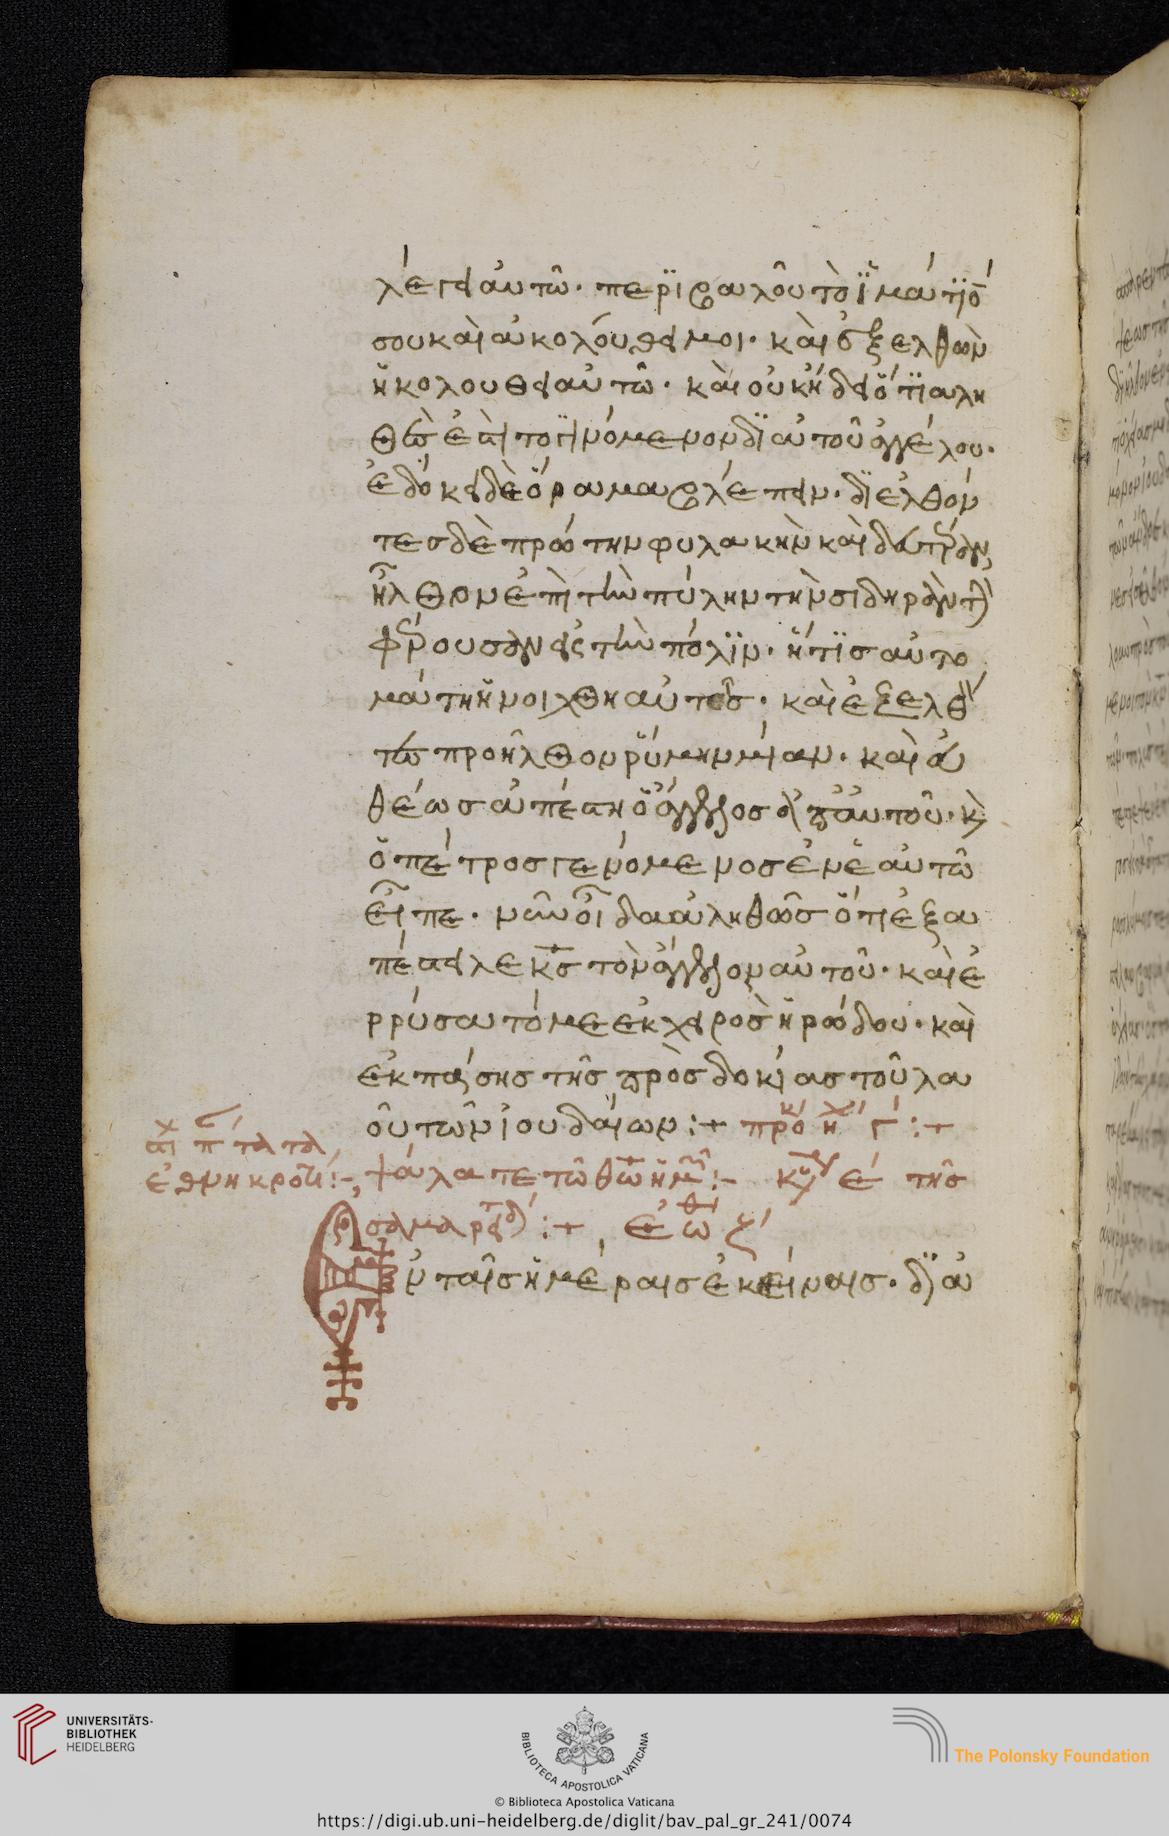 λέγει αὐτῶ· περϊβαλοῦ τὸ ϊμάτϊό
σου καὶ ἀκολούθει μοι· καὶ ἐξελθὼν
ἠκολούθει αὐτῶ· καὶ οὐκ ἤδει ὅτϊ ἀλη
θές ἐστι τὸ γινόμενον δϊὰ τοῦ ἀγγέλου·
ἐδόκει δὲ ὅραμα βλέπειν· δϊελθόν
τες δὲ πρώτην φυλακὴν καὶ δευτέραν
ἦλθον ἐπὶ τὴν πύλην τὴν σιδηρὰν τὴν
φέρουσαν εἰς τὴν πόλϊν· ἥτϊς αὐτο
μάτη ἠνοίχθη αὐτοῖς· καὶ ἐξελθόν
τες προῆλθον ῥύμην μίαν· καὶ εὐ
θέως ἀπέστη ὁ ἄγγελος ἀπ' αὐτοῦ· κὶ
ὁ πέτρος γενόμενος ἐν ἑαυτῶ
εἶπε· νῦν οἶδα ἀληθῶς ὅτι ἐξα
πέστειλε κς τὸν ἄγγελον αὐτοῦ· καὶ ἐ
ρρύσατό με ἐκ χειρὸς ἡρώδου· καὶ
ἐκ πάσης τῆς προσδοκίας τοῦ λα
οῦ τῶν ἰουδαίων :+ προκ ηχ γ :+
ψάλατε τῶ θω ἡμ :- κυ ε τῆς
σαμαρειτιδ :+ ἐωθ ζ
ἐν ταῖς ἡμέραις ἐκείναις· δϊα
στι π τα τα
ἔθνη κροτ :-
UNIVERSITÄTS-
BIBLIOTHEK
HEIDELBERG
BIBLIOTECA APOSTOLICA VATICANA
The Polonsky Foundation
© Biblioteca Apostolica Vaticana
https://digi.ub.uni-heidelberg.de/diglit/bav_pal_gr_241/0074